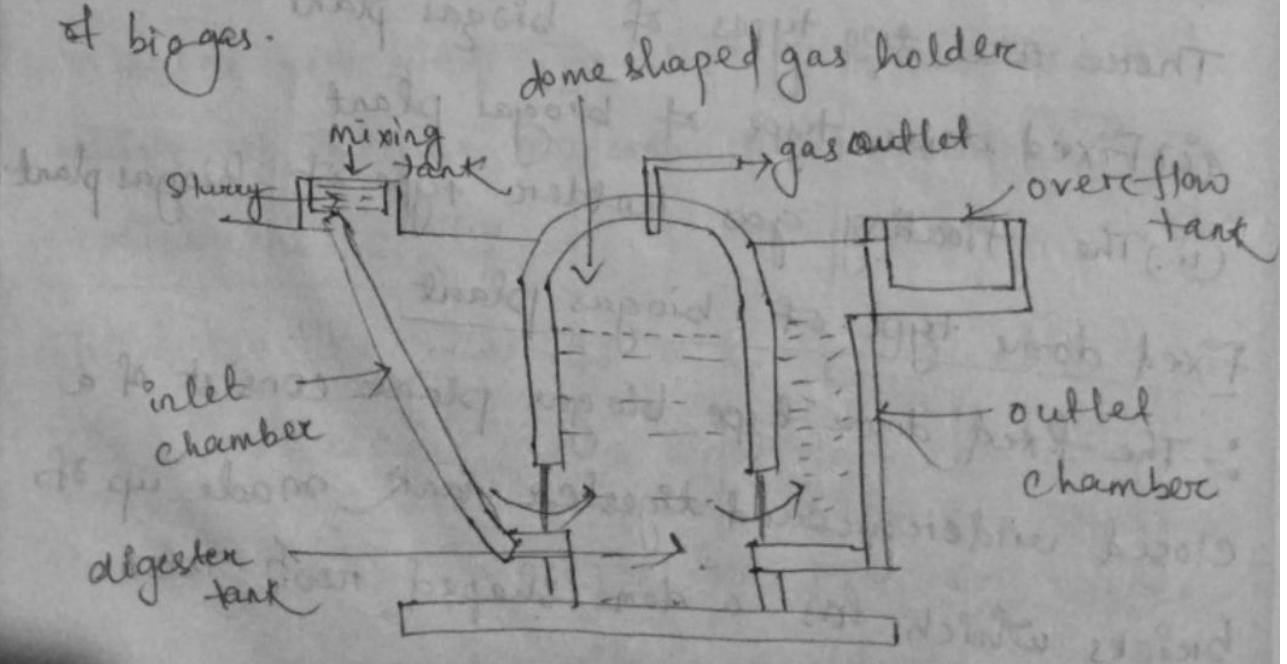 of biogas.
dome shaped gas holder
mixing
tank
gas outlet
Slurry
over-flow
tank
inlet
chamber
outlet
chamber
digester
tank